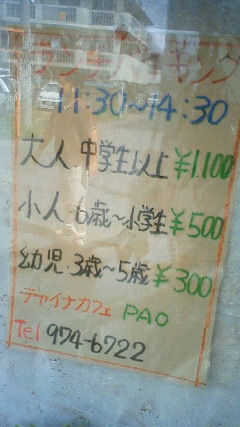 ランチバイキング
11:30~14:30
大人 中学生以上 ¥1.100
小人 6歳~小学生 ¥500
幼児.3歳~5歳 ¥300
チャイナカフェ PAO
Tel 974-6722